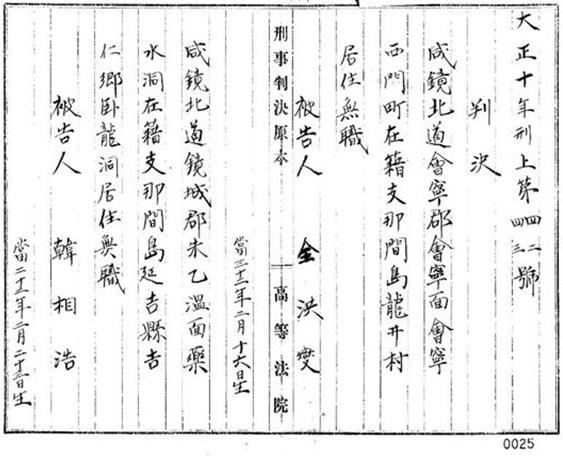 大正十年刑上第四二四三號
判決
咸鏡北道會寧郡會寧面會寧
西門町在籍支那間島龍井村
居住無職
被告人 金洪燮
當三十二年二月十六日生
刑事判決原本 高等法院
咸鏡北道鏡城郡朱乙溫面藥
水洞在籍支那間島延吉縣吉
仁鄉臥龍洞居住無職
被告人 韓相浩
當二十三年二月二十三日生
0025